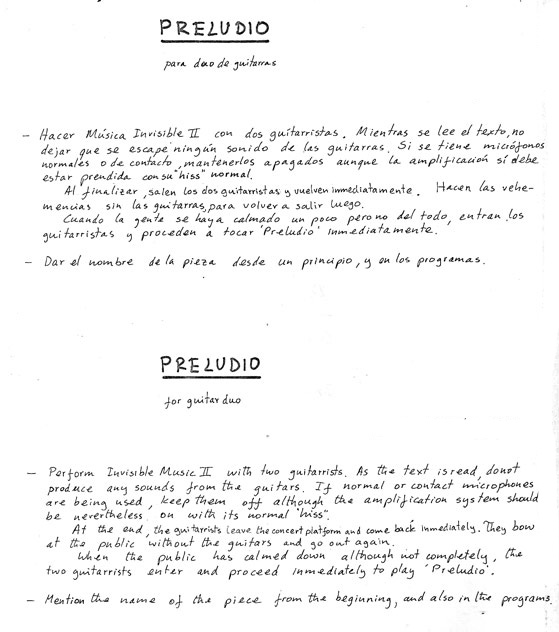 PRELUDIO
para duo de guitarras
- Hacer Música Invisible II con dos guitarristas. Mientras se lee el texto, no
dejar que se escape ningún sonido de las guitarras. Si se tiene micrófonos
normales o de contacto, mantenerlos apagados aunque la amplificación sí debe
estar prendida con su "hiss" normal.
Al finalizar, salen los dos guitarristas y vuelven inmediatamente. Hacen las vehe-
mencias sin las guitarras, para volver a salir luego.
Cuando la gente se haya calmado un poco pero no del todo, entran los
guitarristas y proceden a tocar 'Preludio' inmediatamente.
- Dar el nombre de la pieza desde un principio, y en los programas.
PRELUDIO
for guitar duo
- Perform Invisible Music II with two guitarrists. As the text is read, do not
produce any sounds from the guitars. If normal or contact microphones
are being used, keep them off although the amplification system should
be nevertheless on with its normal "hiss".
At the end, the guitarrists leave the concert platform and come back inmediately. They bow
at the public without the guitars and go out again.
When the public has calmed down although not completely, the
two guitarrists enter and proceed inmediately to play 'Preludio'.
- Mention the name of the piece from the beginning, and also in the programs.